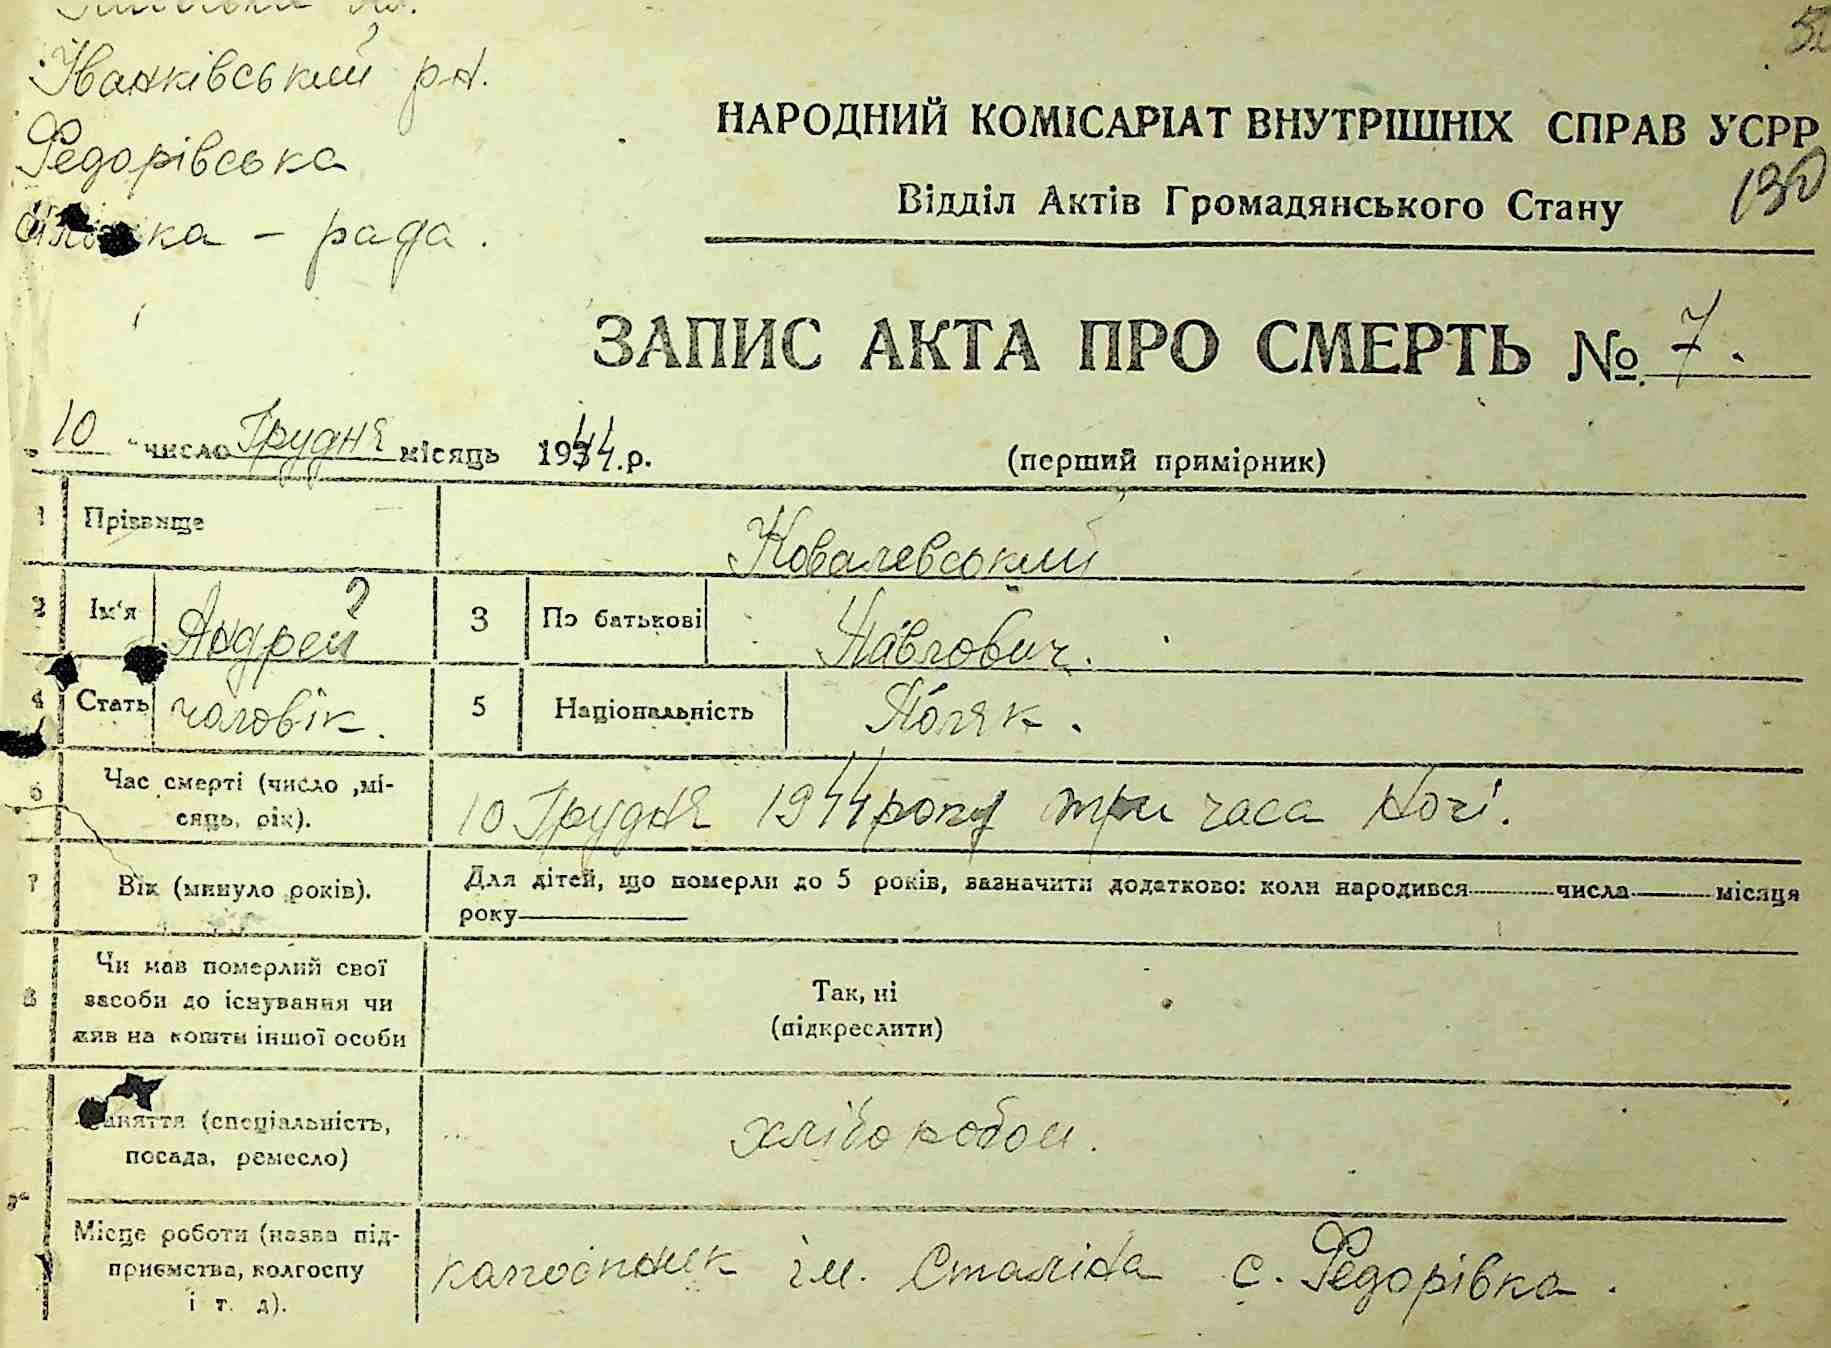 Іванківський рн.
Федорівська
сільська - рада.
НАРОДНИЙ КОМІСАРІАТ ВНУТРІШНІХ СПРАВ УСРР
130
Відділ Актів Громадянського Стану
ЗАПИС АКТА ПРО СМЕРТЬ № 7.
„ 10 " число Грудня місяць 1944.р. (перший примірник)
1 Прізвище Ковалевський
2 Ім'я Андрей 3 По батькові Павлович.
4 Стать чоловік. 5 Національність Поляк.
6 Час смерті (число ,мі-
сяць, рік). 10 Грудня 1944 року три часа ночі.
7 Вік (минуло років). Для дітей, що померли до 5 років, зазначити додатково: коли народився числа місяця
року
8 Чи мав померлий свої
засоби до існування чи
жив на кошти іншої особи
Так, ні
(підкреслити)
Заняття (спеціальність,
посада, ремесло) хлібороб
Місце роботи (назва під-
приємства, колгоспу
і т. д). колгоспник ім. Сталіна с. Федорівка.